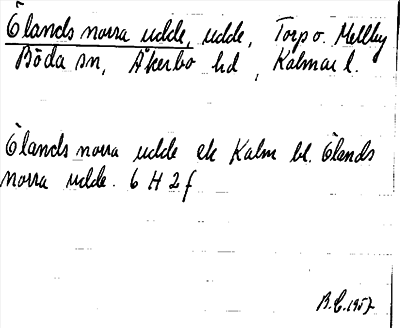 Ölands norra udde, udde, Torp o. Mellby
Böda sn, Åkerbo hd, Kalmar l.
Ölands norra udde ek Kalm bl. Ölands
norra udde. 6 H 2 f
B.E. 1957